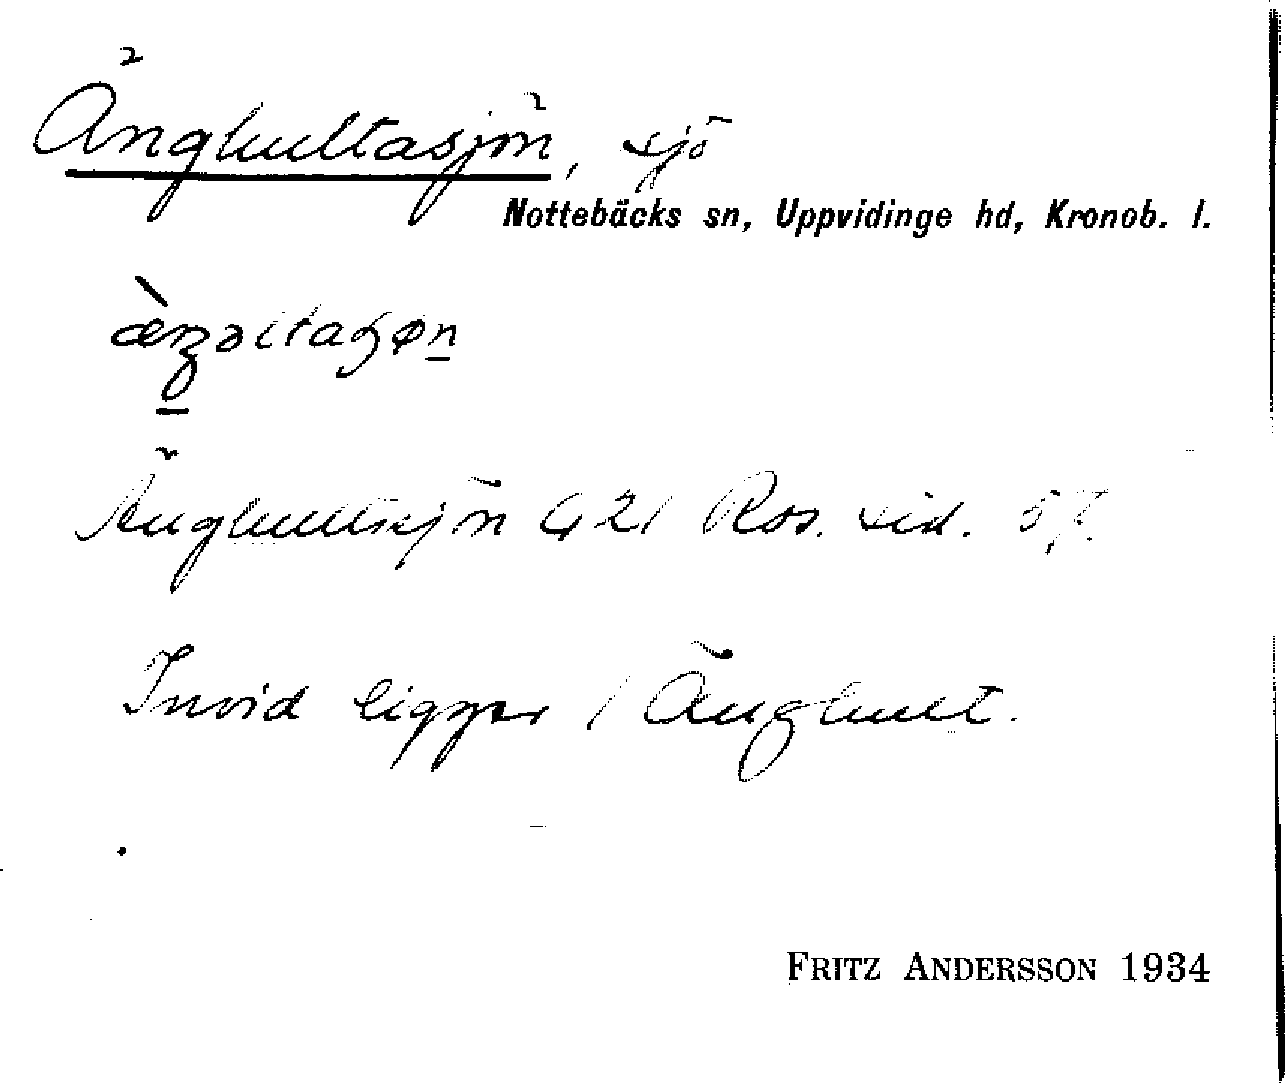 Änghultasjön, sjö
Nottebäcks sn, Uppvidinge hd, Kronob. l.
Änghultsjön G 21 Ros. sid. 57.
Invid ligger 1 Änghult.
FRITZ ANDERSSON 1934